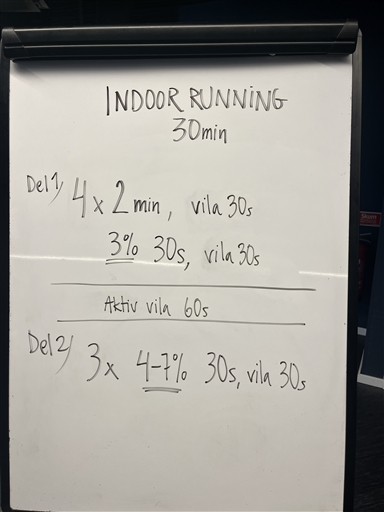 INDOOR RUNNING
30min
Del 1) 4 x 2 min, vila 30s
3% 30s, vila 30s
Aktiv vila 60s
Del 2) 3x 4-7% 30s, vila 30s